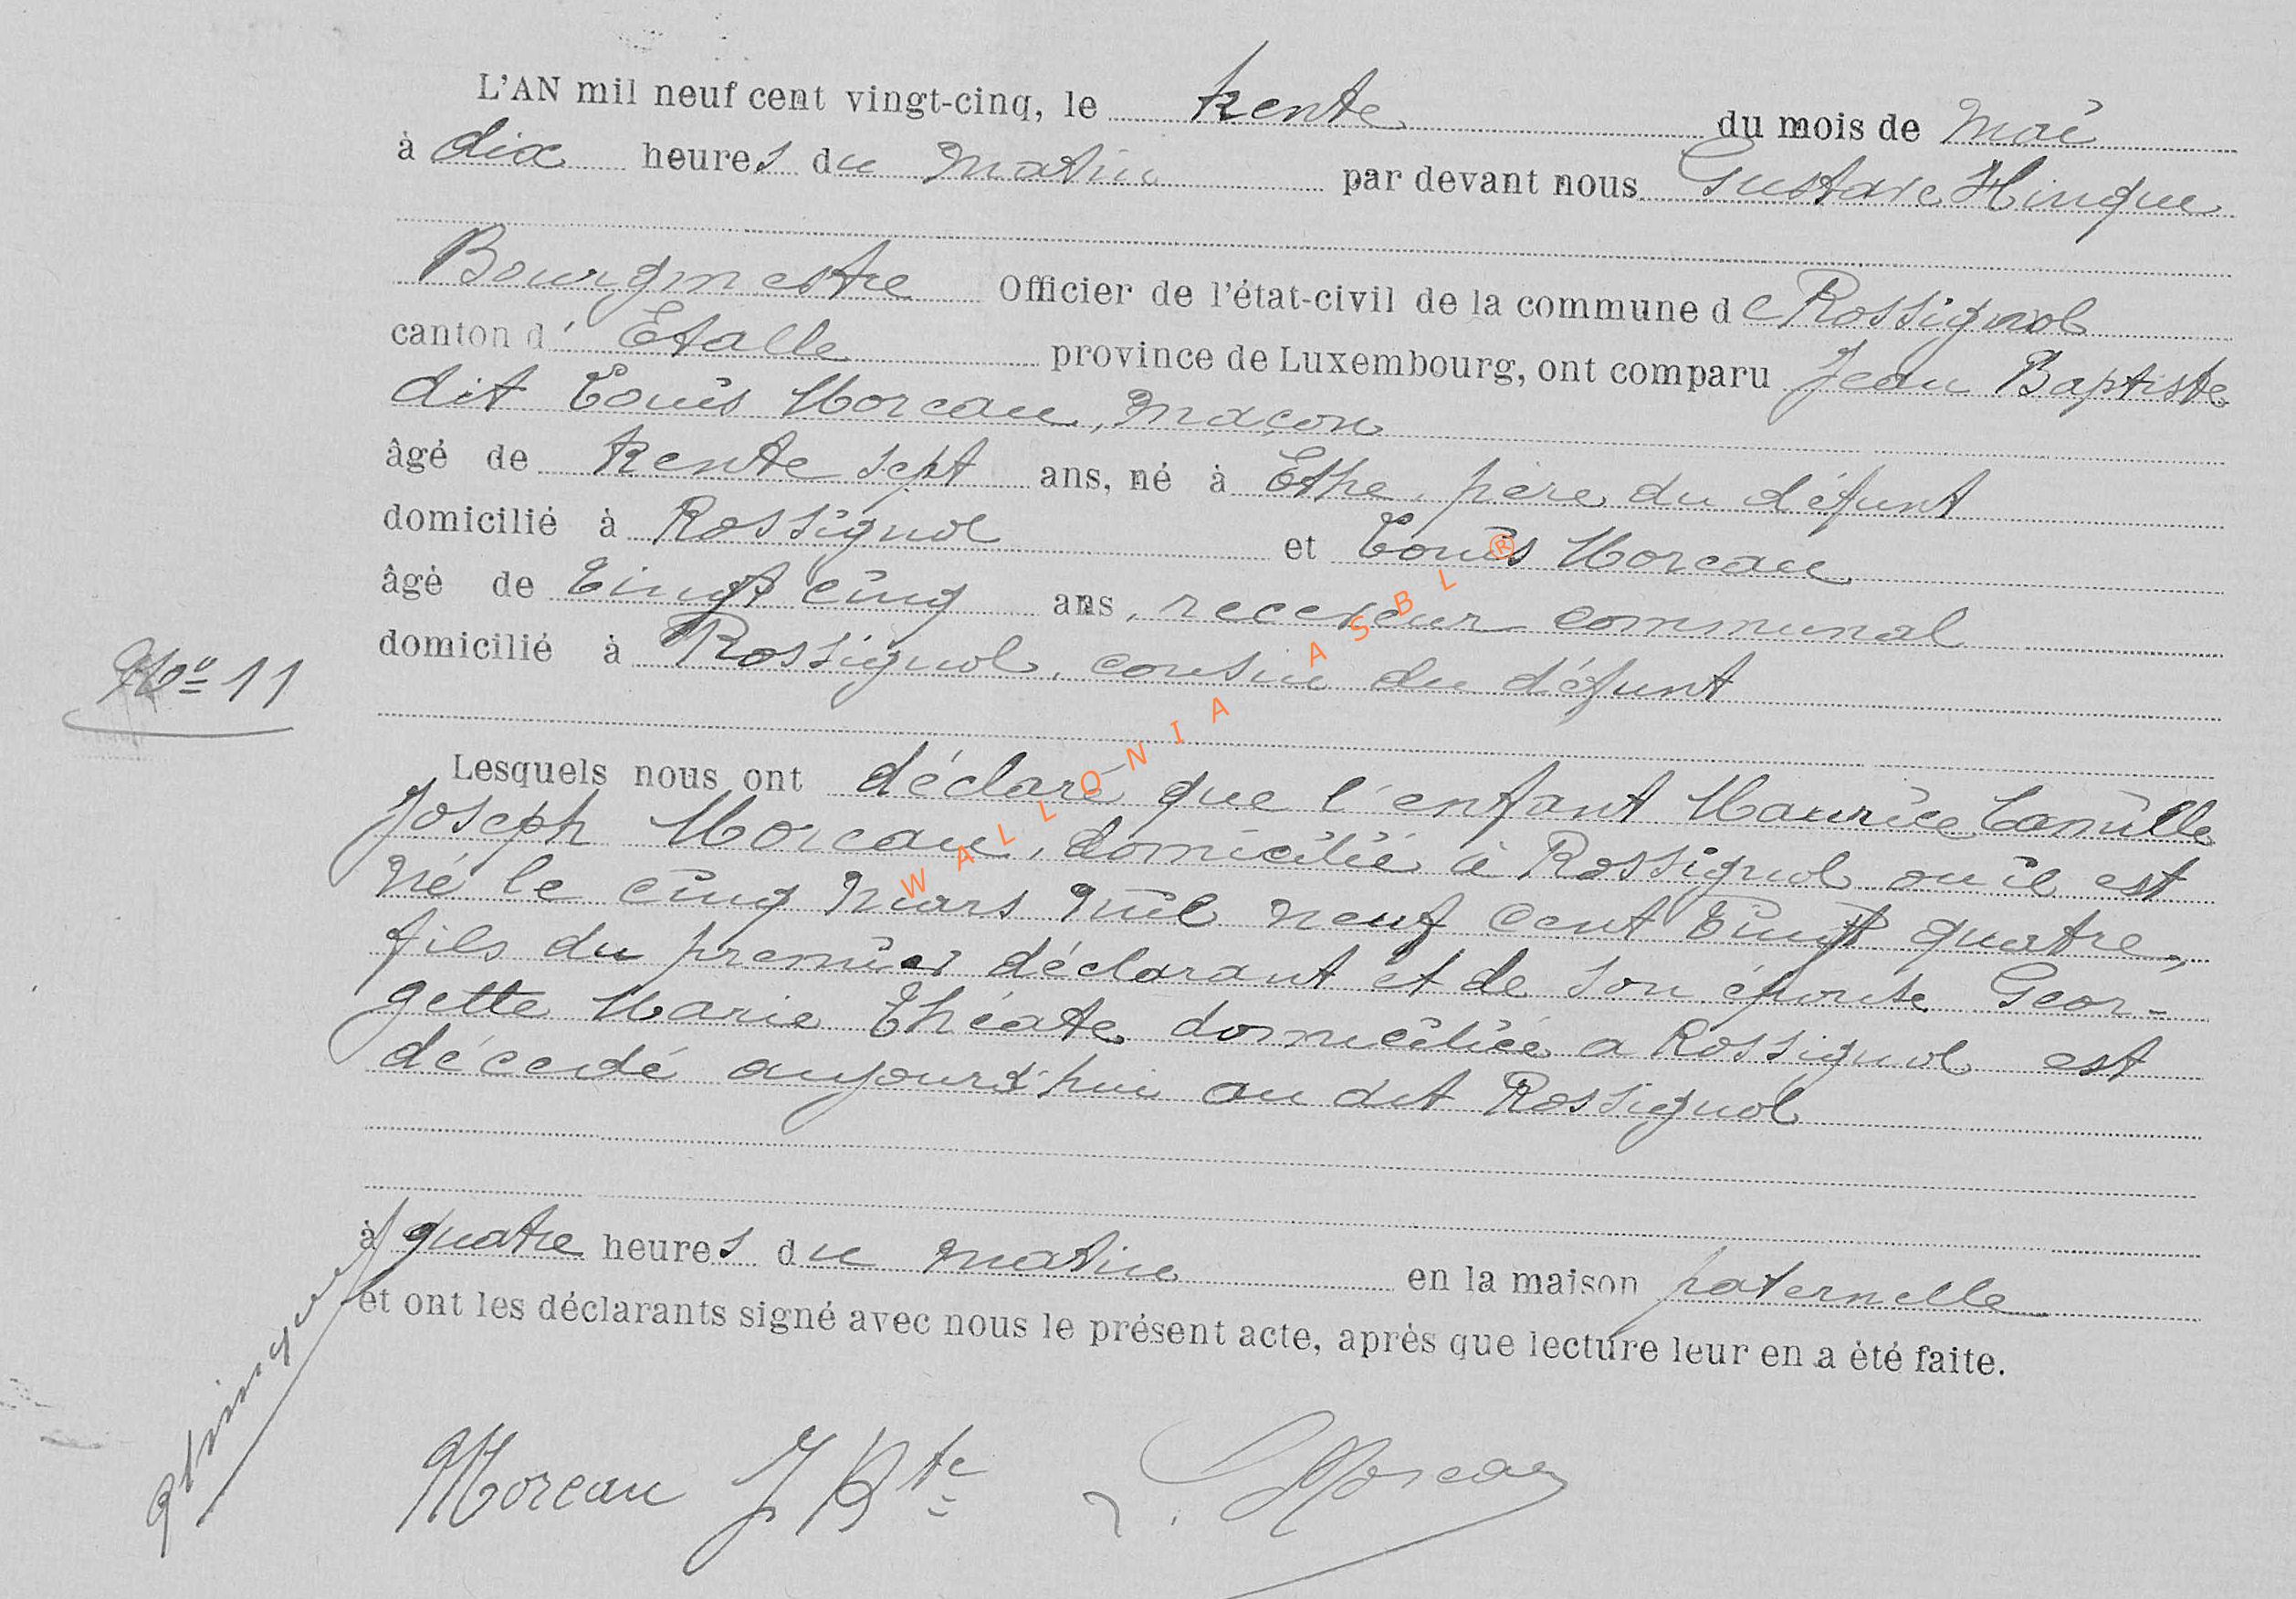 L'AN mil neuf cent vingt-cinq, le trente du mois de Mai
à dix heures du Matin par devant nous Gustave Hinque
Bourgmestre Officier de l'état-civil de la commune de Rossignol
canton d'Etalle province de Luxembourg, ont comparu Jean Baptiste
dit Louis Moreau, Maçon
âgé de trente sept ans, né à Ethe, père du défunt
domicilié à Rossignol et Louis Moreau
âgé de Vingt cinq ans, receveur communal
domicilié à Rossignol, cousin du défunt
No 11
Lesquels nous ont déclaré que l'enfant Maurice Camille
Joseph Moreau, domicilié à Rossignol où il est
Né le cinq Mars Mil neuf cent Vingt quatre,
fils du premier déclarant et de son épouse Geor-
gette Marie Théate domiciliée a Rossignol est
décédé aujourd'hui au dit Rossignol
à quatre heures du matin en la maison paternelle
et ont les déclarants signé avec nous le présent acte, après que lecture leur en a été faite.
Moreau J Bte L. Moreau
G Hinque
WALLONIA ASBL ®